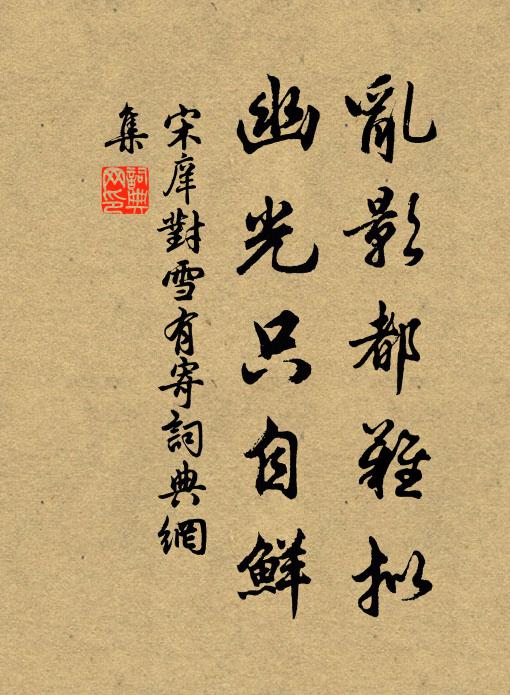 亂影都難拟
幽光只自鮮
宋庠對雪有寄詞典網
集
詞典
网印